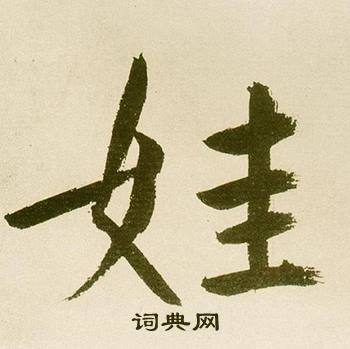 娃
词典网